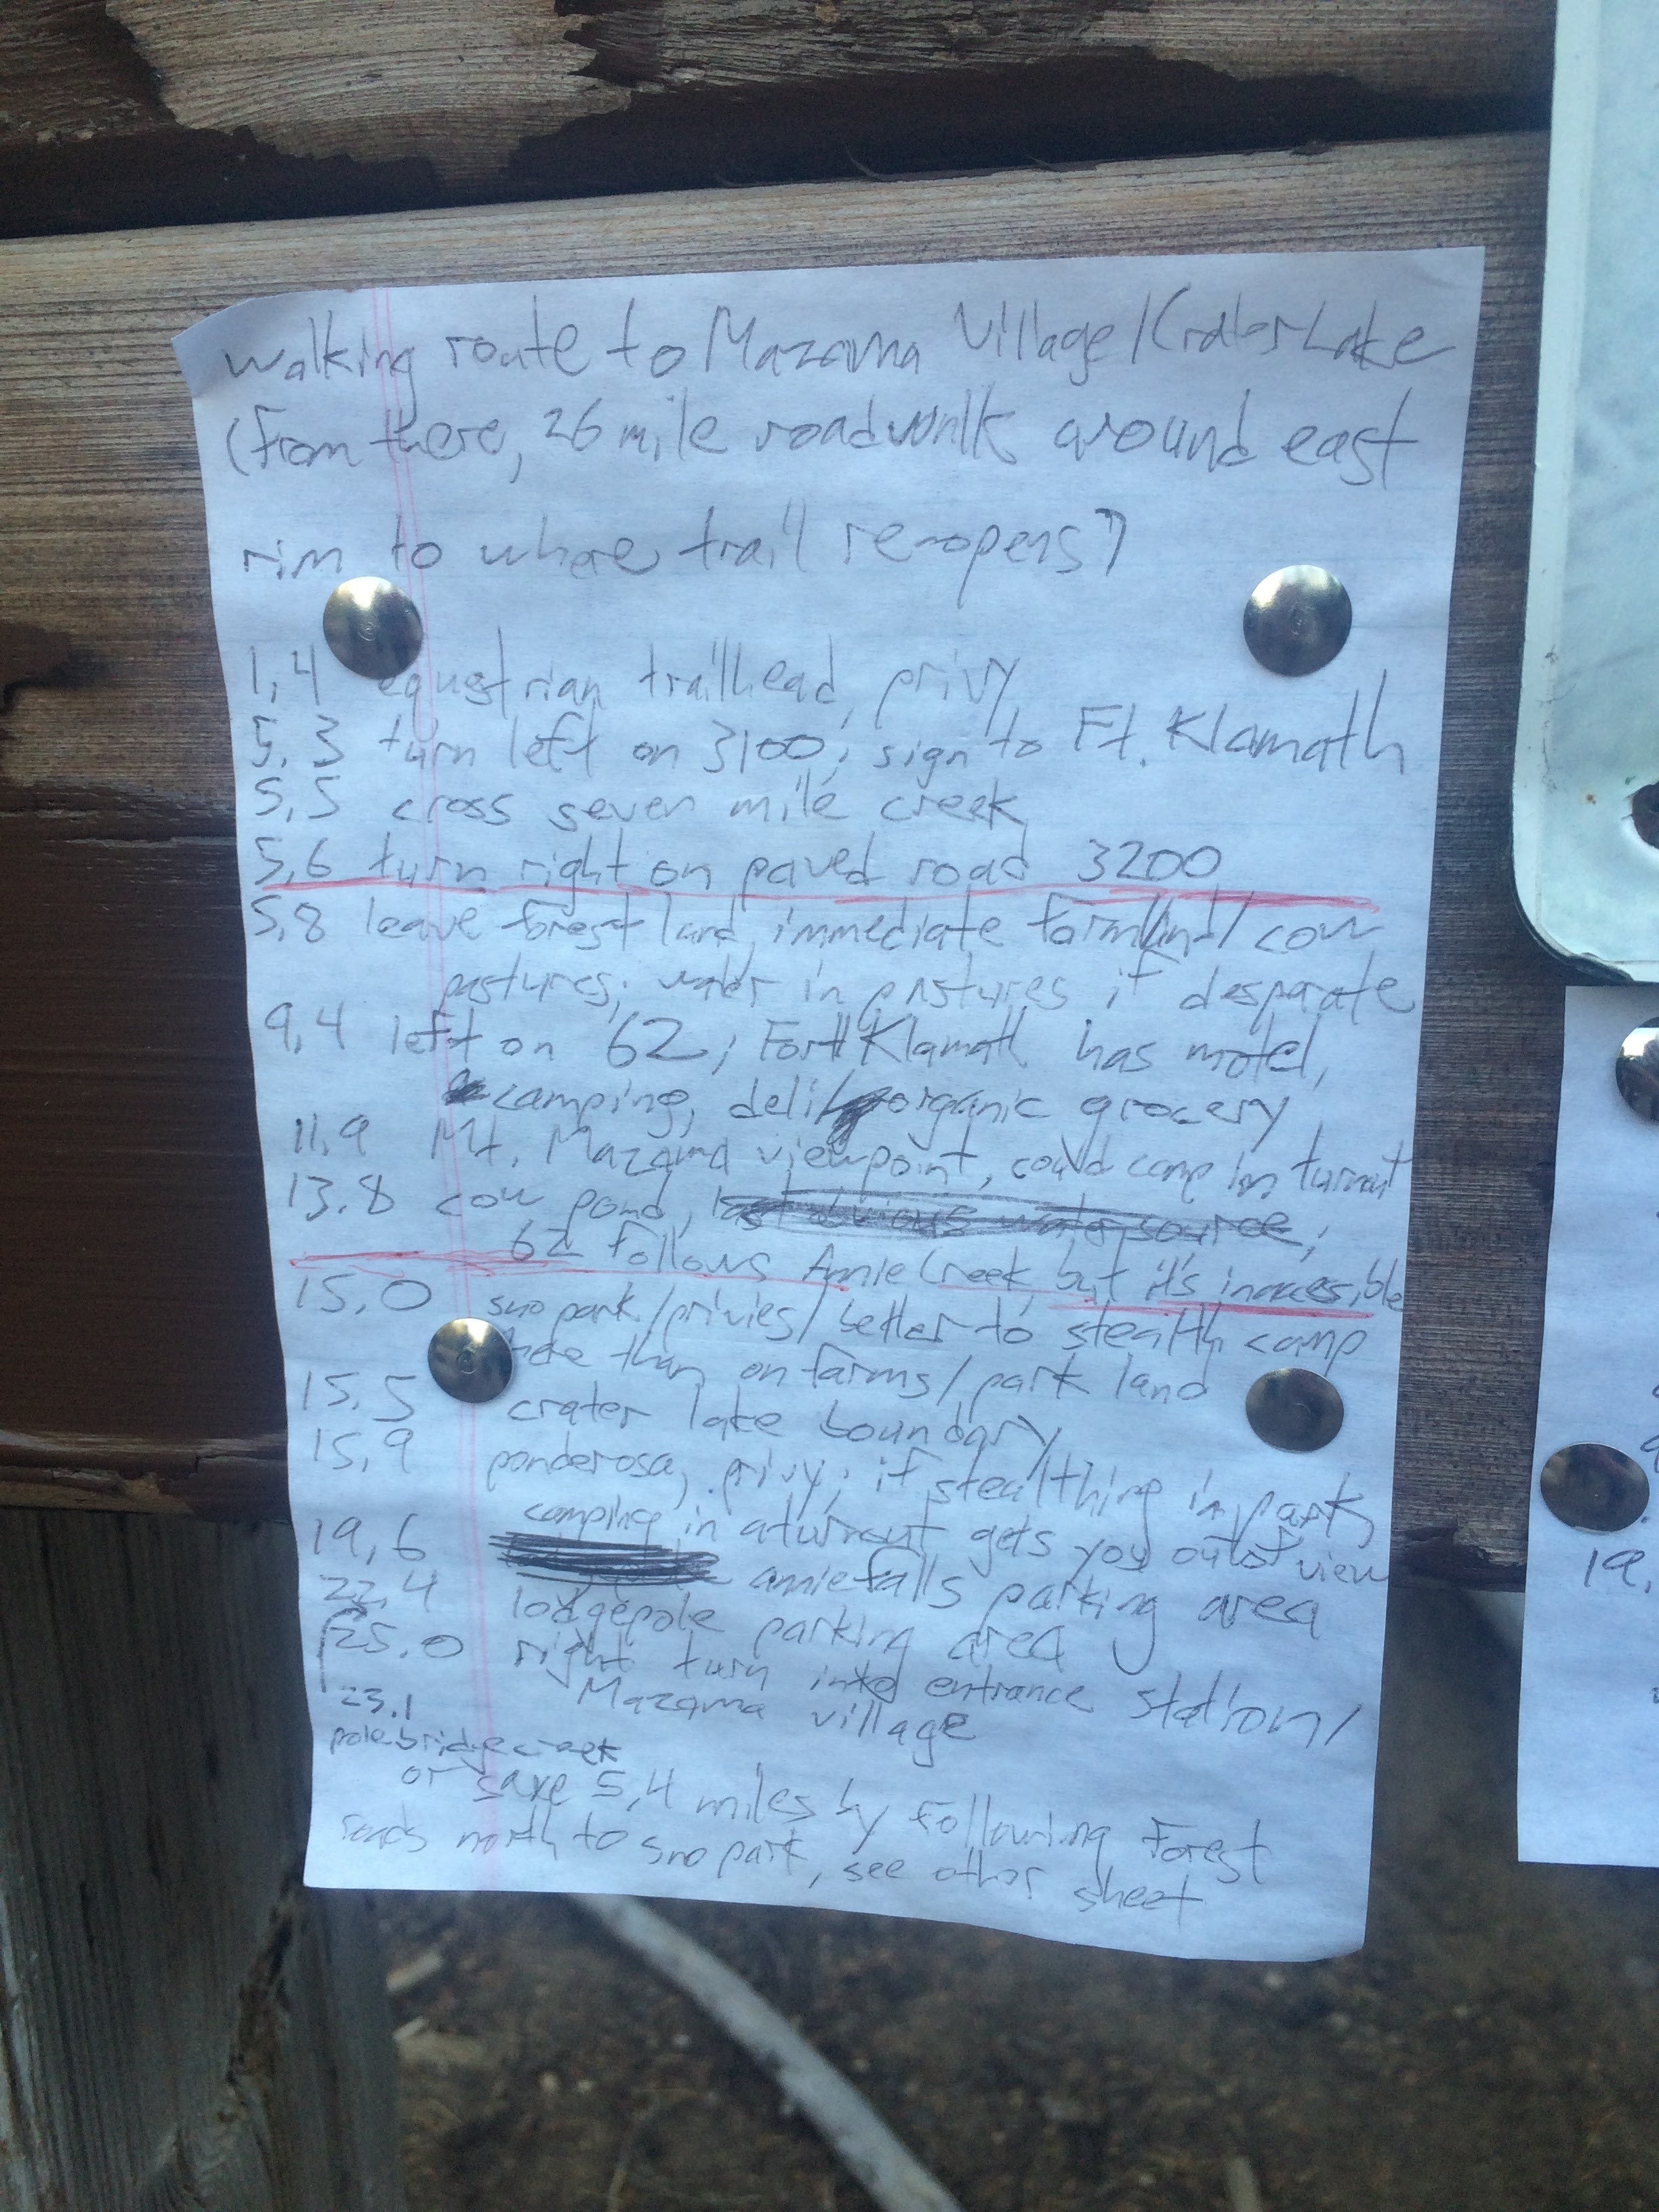 walking route to Mazama Village/Crater Lake
(from there, 26 mile roadwalk around east
rim to where trail re-opens)
1,4 equestrian trailhead, privy
5,3 turn left on 3100; sign to Ft. Klamath
5,5 cross seven mile creek
5,6 turn right on paved road 3200
5,8 leave forest land, immediate farmland/cow
pastures; water in pastures if desparate
9,4 left on 62; Fort Klamath has motel,
camping, deli/organic grocery
11,9 Mt. Mazama viewpoint, could camp in turnout
13.8 cow pond, last obvious water source;
62 follows Annie Creek but it's inaccessible
15,0 sno park/privies/better to stealth camp
here than on farms/park land
15,5 crater lake boundary
15,9 ponderosa, privy; if stealthing in park,
camping in a turnout gets you out of view
19,6 annie falls parking area
22,4 lodgepole parking area
25.0 right turn into entrance station/
Mazama village
23.1
pole bridge creek
or save 5,4 miles by following Forest
roads north to sno park, see other sheet
19.